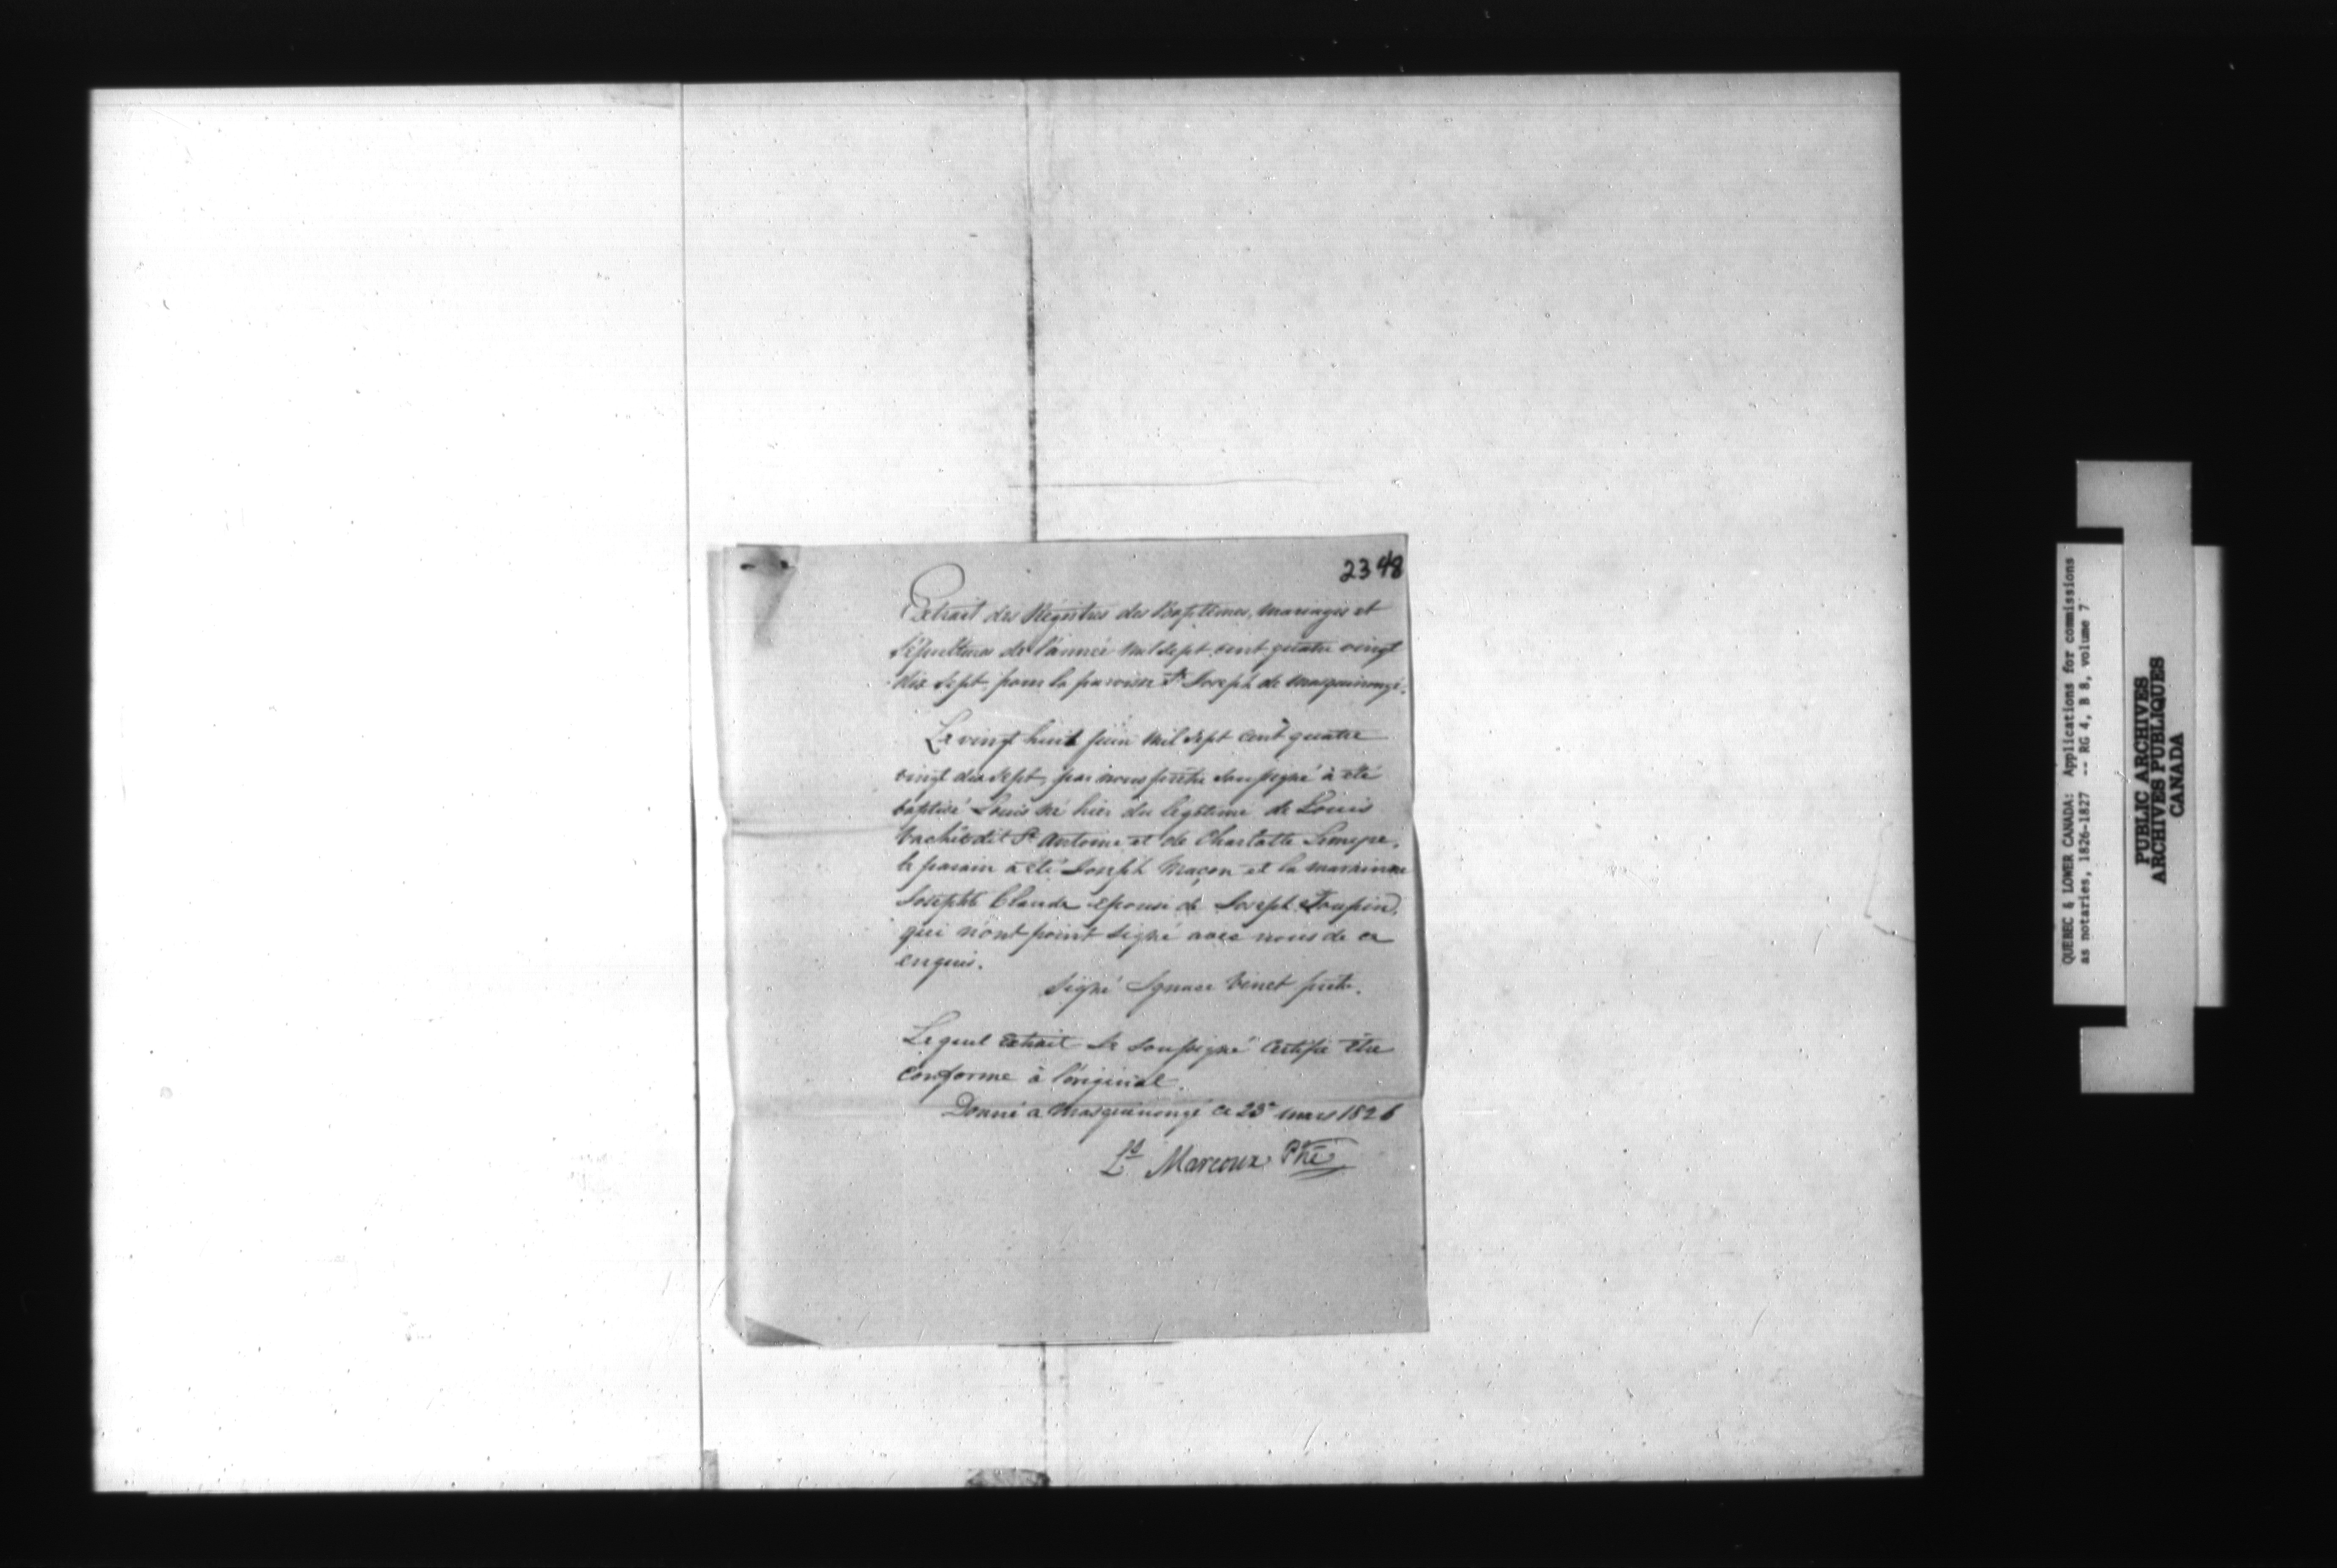 2348
Extrait des Régistres des Baptêmes, mariages et
Sépultures de l'année mil sept cent quatre vingt
dix sept, pour la paroisse St Joseph de Masquinongé.
Le vingt huit juin mil sept cent quatre
vingt dix sept, par nous prêtre soussigné à été
baptisé Louis né hier du légitime de Louis
Vachér dit St Antoine et de Charlotte
le parain a été Joseph Maçon et la maraine
Josephte Claude épouse de Joseph Toupin,
qui n'ont point signé avec nous de ce
enquis.
Signé Ignace Vinet prêtre.
Lequel extrait Je soussigné certifie être
conforme à l'original.
Donné a Masquinongé ce 23e mars 1826
Ls Marcoux Ptre
QUEBEC & LOWER CANADA: Applications for commissions
as notaries, 1826-1827 -- RG 4, B 8, volume 7
PUBLIC ARCHIVES
ARCHIVES PUBLIQUES
CANADA